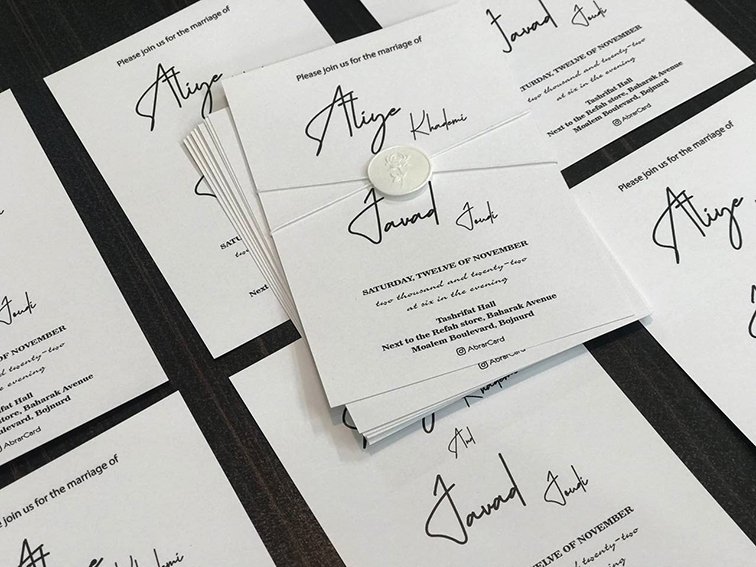 Please join us for the marriage of
Aliye
Next
Please join us for the marriage of
Aliye Khademi
Javad Joudi
SATURDAY, TWELVE OF NOVEMBER
two thousand and twenty-two
at six in the evening
Tashrifat Hall
Next to the Refah store, Baharak Avenue
Moalem Boulevard, Bojnurd
AbrarCard
AbrarCard
Javad Joudi
TURDAY, TWELVE OF NOVEMBER
two thousand and twenty-two
at six in the evening
Tashrifat Hall
Next to the Refah store, Baharak Avenue
Moalem Boulevard, Bojnurd
AbrarCard
Please join us for the marriage of
Aliye
Joudi
OF NOVEMBER
twenty-two
evening
Hall
store, Baharak Avenue
Bojnurd
AbrarCard
join us for the marriage of
Khademi
Khademi
And
Javad Joudi
TWELVE OF NOVEMBER
twenty-two